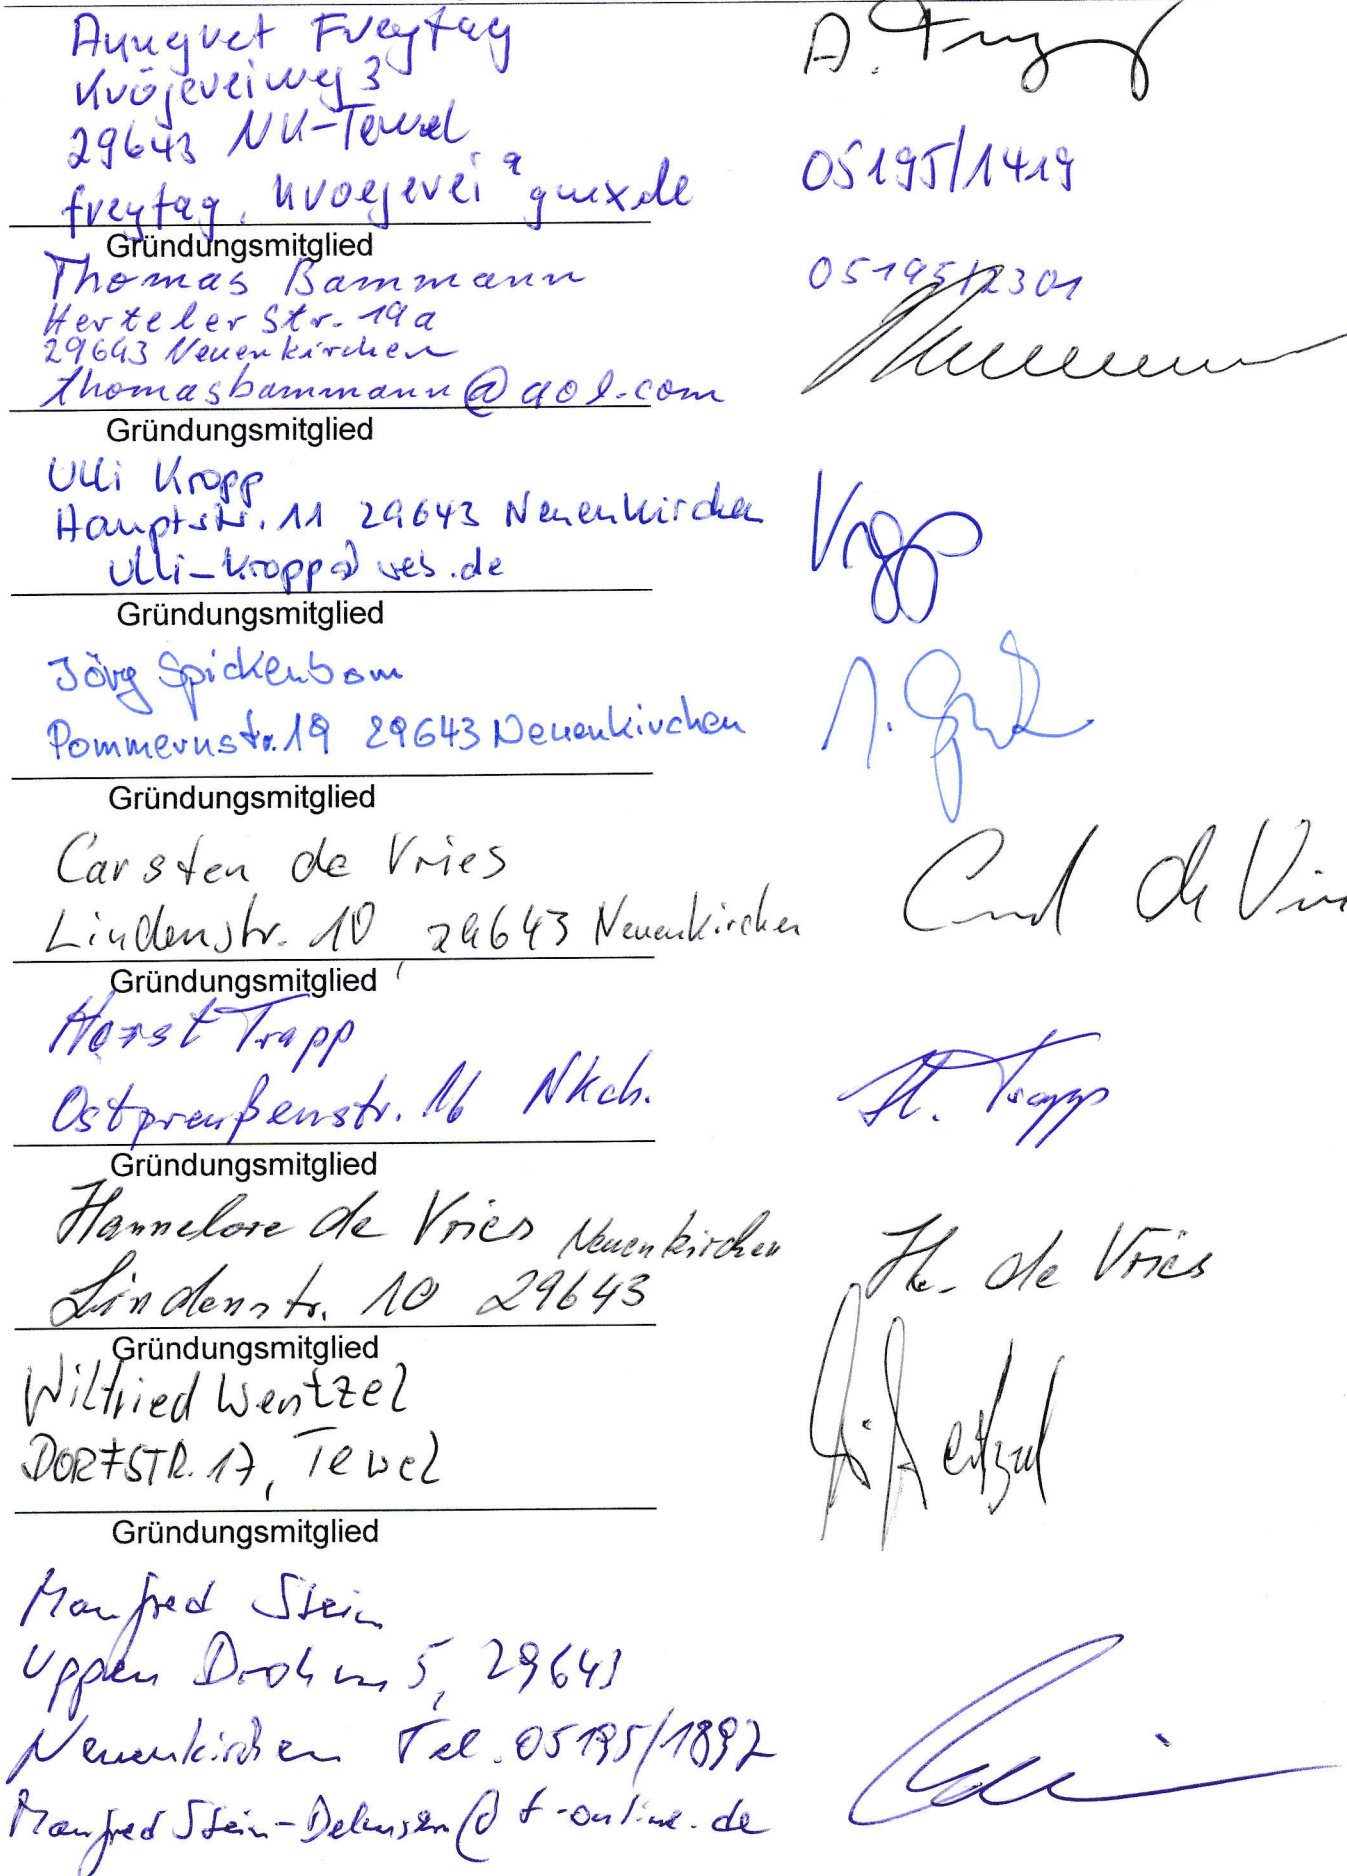 Annegret Freytag
Krögereiweg 3
29643 NK-Tewel
freytag.kroegerei@gmx.de
A. Freytag
05195/1419
Gründungsmitglied
Thomas Bammann
Herteler Str. 19a
29643 Neuenkirchen
thomasbammann@aol.com
05195/2301
Gründungsmitglied
Ulli Kropp
Hauptstr. 11 29643 Neuenkirchen
Ulli-Kropp@web.de
Kropp
Gründungsmitglied
Jörg Spickenbom
Pommernstr. 19 29643 Neuenkirchen
Gründungsmitglied
Carsten de Vries
Lindenstr. 10, 29643 Neuenkirchen
Gründungsmitglied
Horst Trapp
Ostpreußenstr. 16 Nkch.
H. Trapp
Gründungsmitglied
Hannelore de Vries Neuenkirchen
Lindenstr. 10 29643
H. de Vries
Gründungsmitglied
Wilfried Wentzel
DORFSTR. 17, Tewel
Gründungsmitglied
Manfred Stein
29643
Neuenkirchen Tel. 05195/1892
@t-online.de